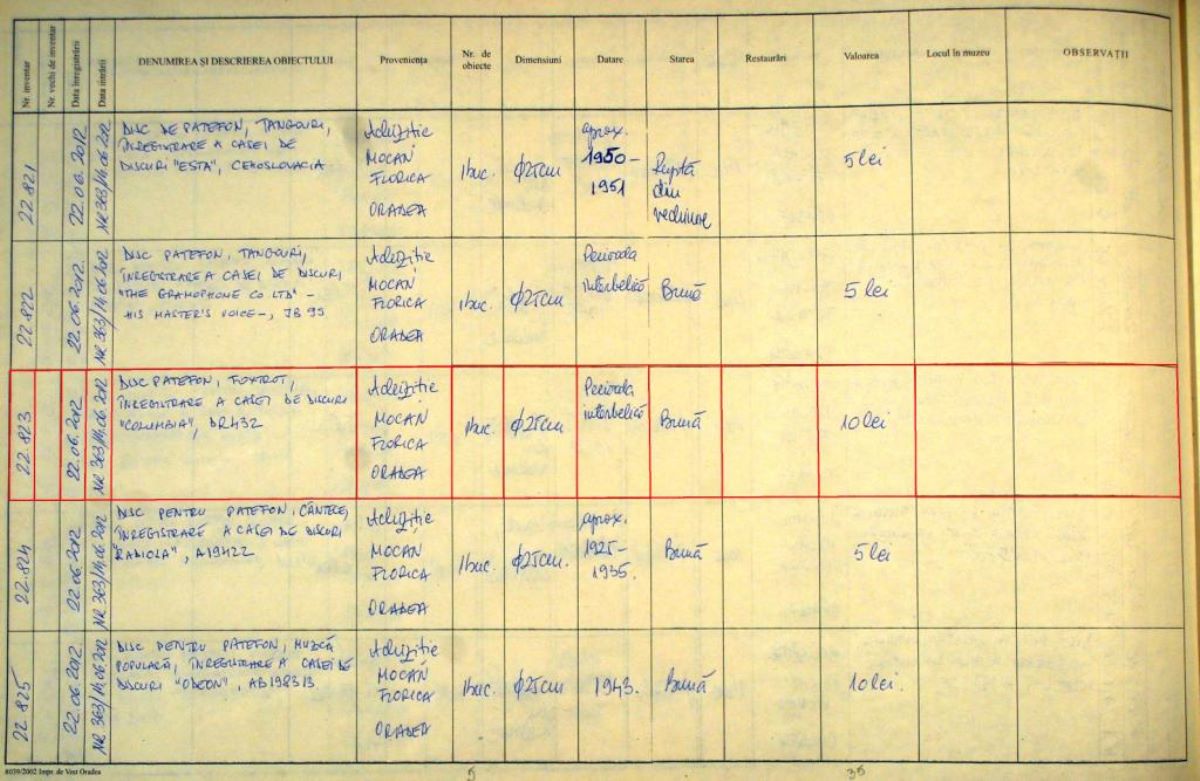 Nr. inventar
Nr. vechi de inventar
Data înregistrării
Data intrării
DENUMIREA ȘI DESCRIEREA OBIECTULUI
Proveniența
Nr. de
obiecte
Dimensiuni
Datare
Starea
Restaurări
Valoarea
Locul în muzeu
OBSERVAȚII
22.821
22.06.2012
NR 363/14.06.2012
DISC DE PATEFON, TANGOURI,
ÎNREGISTRARE A CASEI DE
DISCURI "ESTA", CEHOSLOVACIA
Achiziție
MOCAN
FLORICA
ORADEA
1buc.
ϕ25cm
aprox.
1950-
1951
Ruptă
din
vechime
5 lei
22.822
22.06.2012
NR 363/14.06.2012
DISC PATEFON, TANGOURI,
ÎNREGISTRARE A CASEI DE DISCURI
"THE GRAMOPHONE CO LTD" -
HIS MASTER'S VOICE-, JB 95
Achiziție
MOCAN
FLORICA
ORADEA
1buc.
ϕ25cm
Perioada
interbelică
Bună
5 lei
22.823
22.06.2012
NR 363/14.06.2012
DISC PATEFON, FOXTROT,
ÎNREGISTRARE A CASEI DE DISCURI
"COLUMBIA", DR432
Achiziție
MOCAN
FLORICA
ORADEA
1buc.
ϕ25cm
Perioada
interbelică
Bună
10 lei
22.824
22.06.2012
NR 363/14.06.2012
DISC PENTRU PATEFON, CÂNTECE,
ÎNREGISTRARE A CASEI DE DISCURI
"RADIOLA", A19422
Achiziție
MOCAN
FLORICA
ORADEA
1buc.
ϕ25cm.
aprox.
1925-
1935.
Bună
5 lei
22.825
22.06.2012.
NR 363/14.06.2012
DISC PENTRU PATEFON, MUZICĂ
POPULARĂ, ÎNREGISTRARE A CASEI DE
DISCURI "ODEON", AB198313
Achiziție
MOCAN
FLORICA
ORADEA
1buc.
ϕ25cm
1943.
Bună
10 lei.
8039/2002 Impr. de Vest Oradea
35